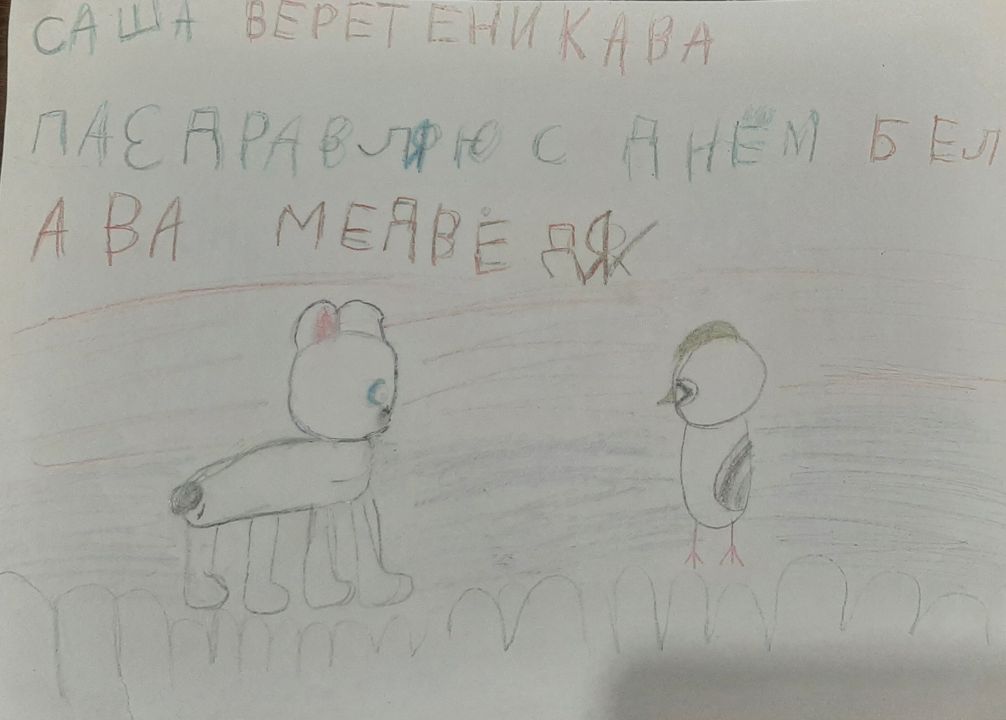 САША ВЕРЕТЕНИКАВА
ПАЕДРАВЛЯЮ С ДНЁМ БЕЛ
АВА МЕДВЕДЯ